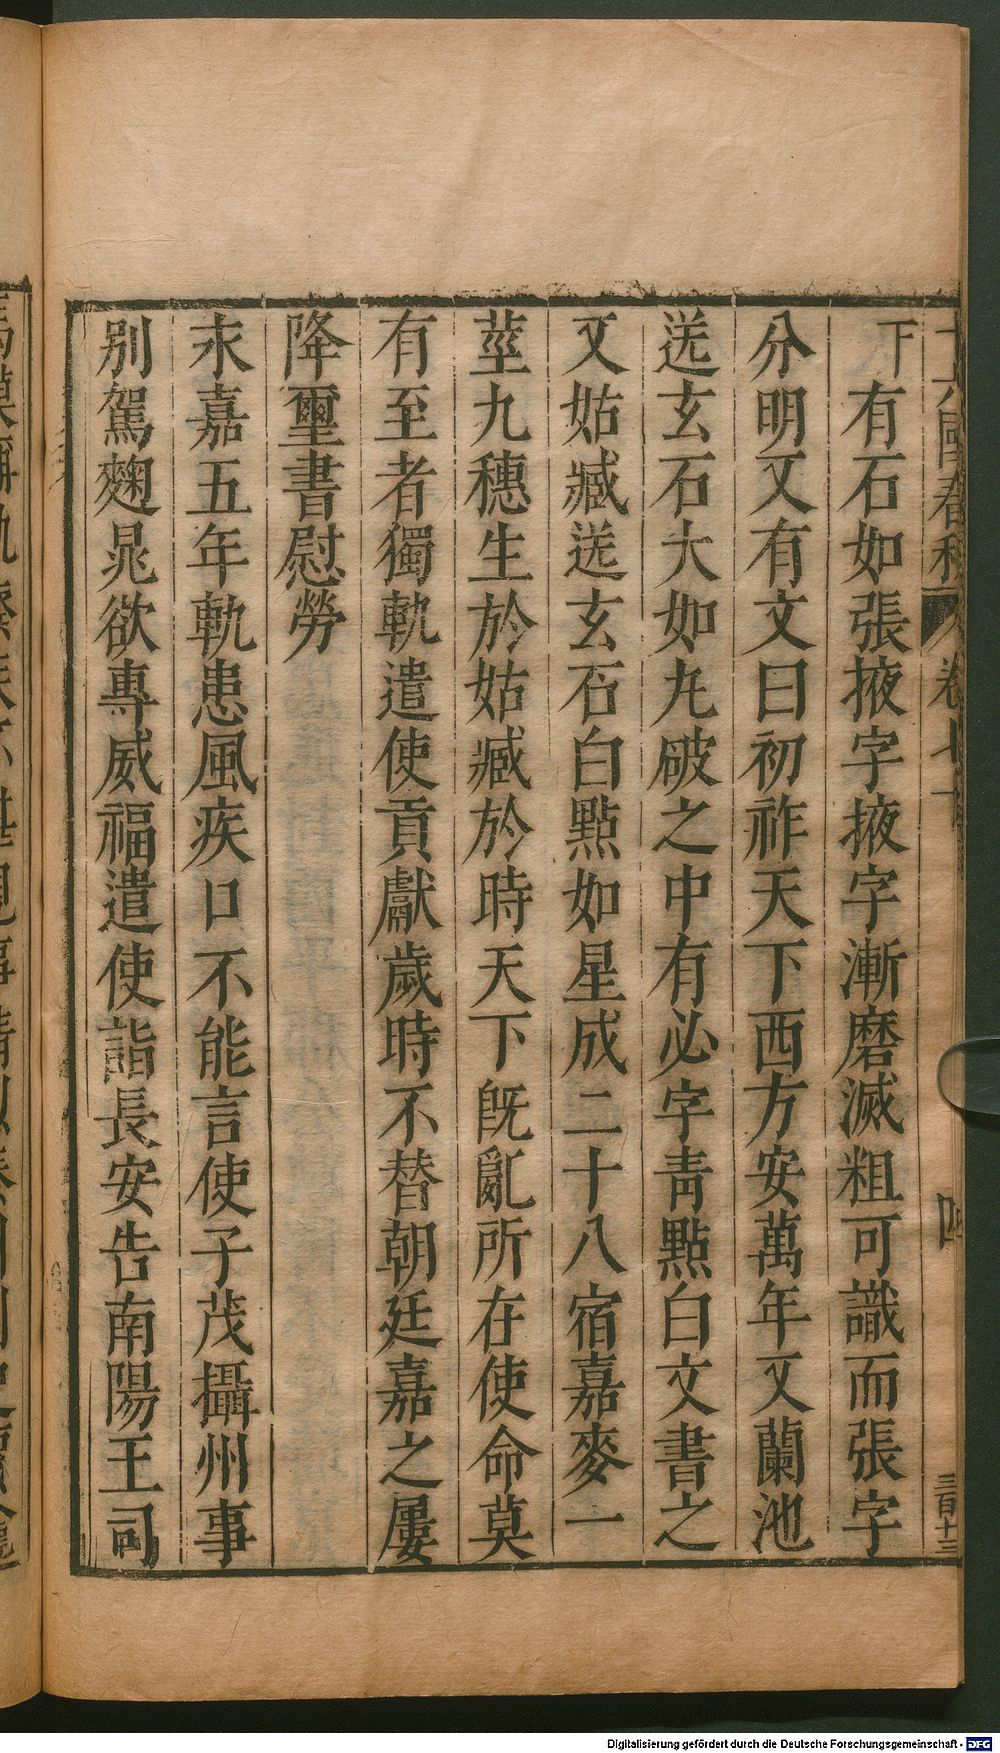 十六國春秋 卷七十 四 三百十三
下有石如張掖字掖字漸磨滅粗可識而張字
分明又有文曰初祚天下西方安萬年又蘭池
送玄石大如丸破之中有必字靑點白文書之
又姑臧送玄石白點如星成二十八宿嘉麥一
莖九穗生於姑臧於時天下旣亂所在使命莫
有至者獨軌遣使貢獻歲時不替朝廷嘉之屢
降璽書慰勞
永嘉五年軌患風疾口不能言使子茂攝州事
别駕麴晁欲專威福遣使詣長安告南陽王司
Digitalisierung gefördert durch die Deutsche Forschungsgemeinschaft - DFG